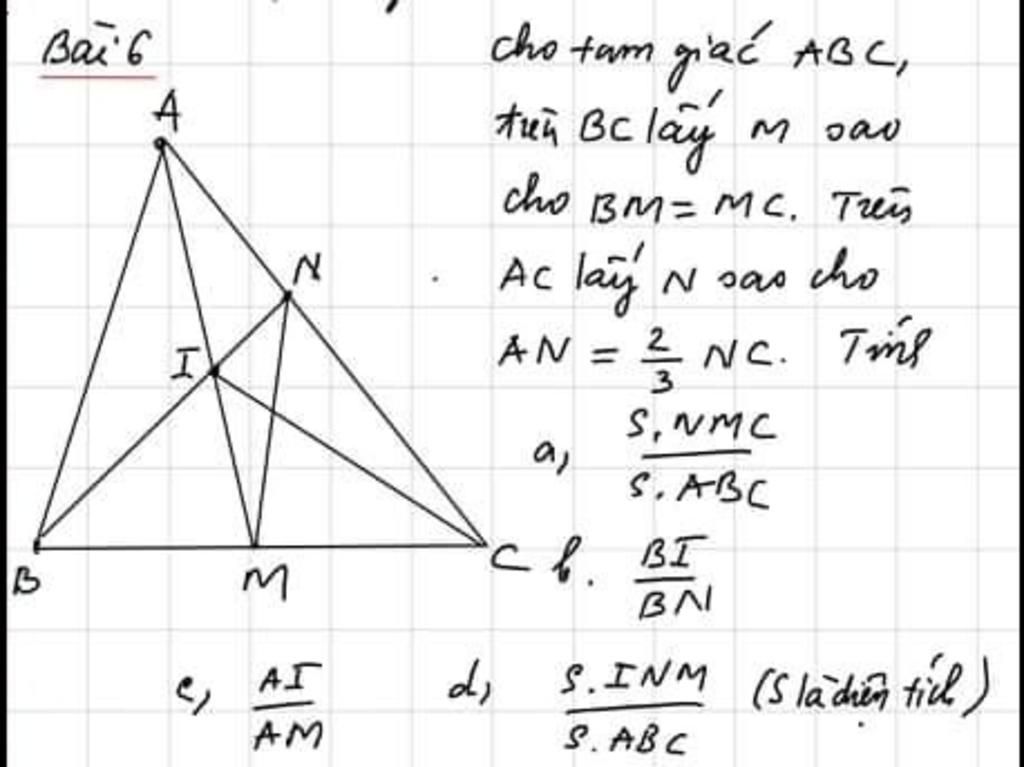 Bài 6
cho tam giác ABC,
trên BC lấy M sao
cho BM = MC. Trên
AC lấy N sao cho
AN = 2/3 NC. Tính
a, S.NMC / S.ABC
b. BI / BN
c, AI / AM
d, S.INM / S.ABC (S là diện tích)
A
N
I
B
M
C